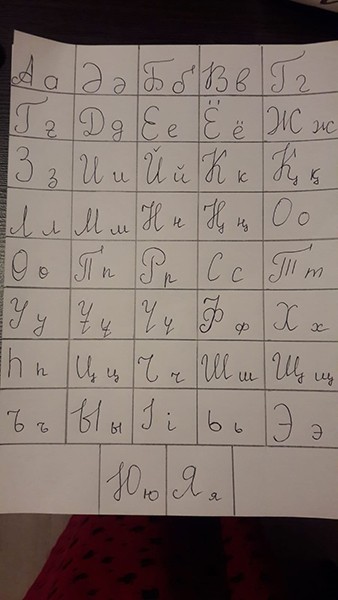 А а Ә ә Б б В в Г г
Ғ ғ Д д Е е Ё ё Ж ж
З з И и Й й К к Қ қ
Л л М м Н н Ң ң О о
Ө ө П п Р р С с Т т
У у Ұ ұ Ү ү Ф ф Х х
Һ һ Ц ц Ч ч Ш ш Щ щ
Ъ ъ Ы ы І і Ь ь Э э
Ю ю Я я